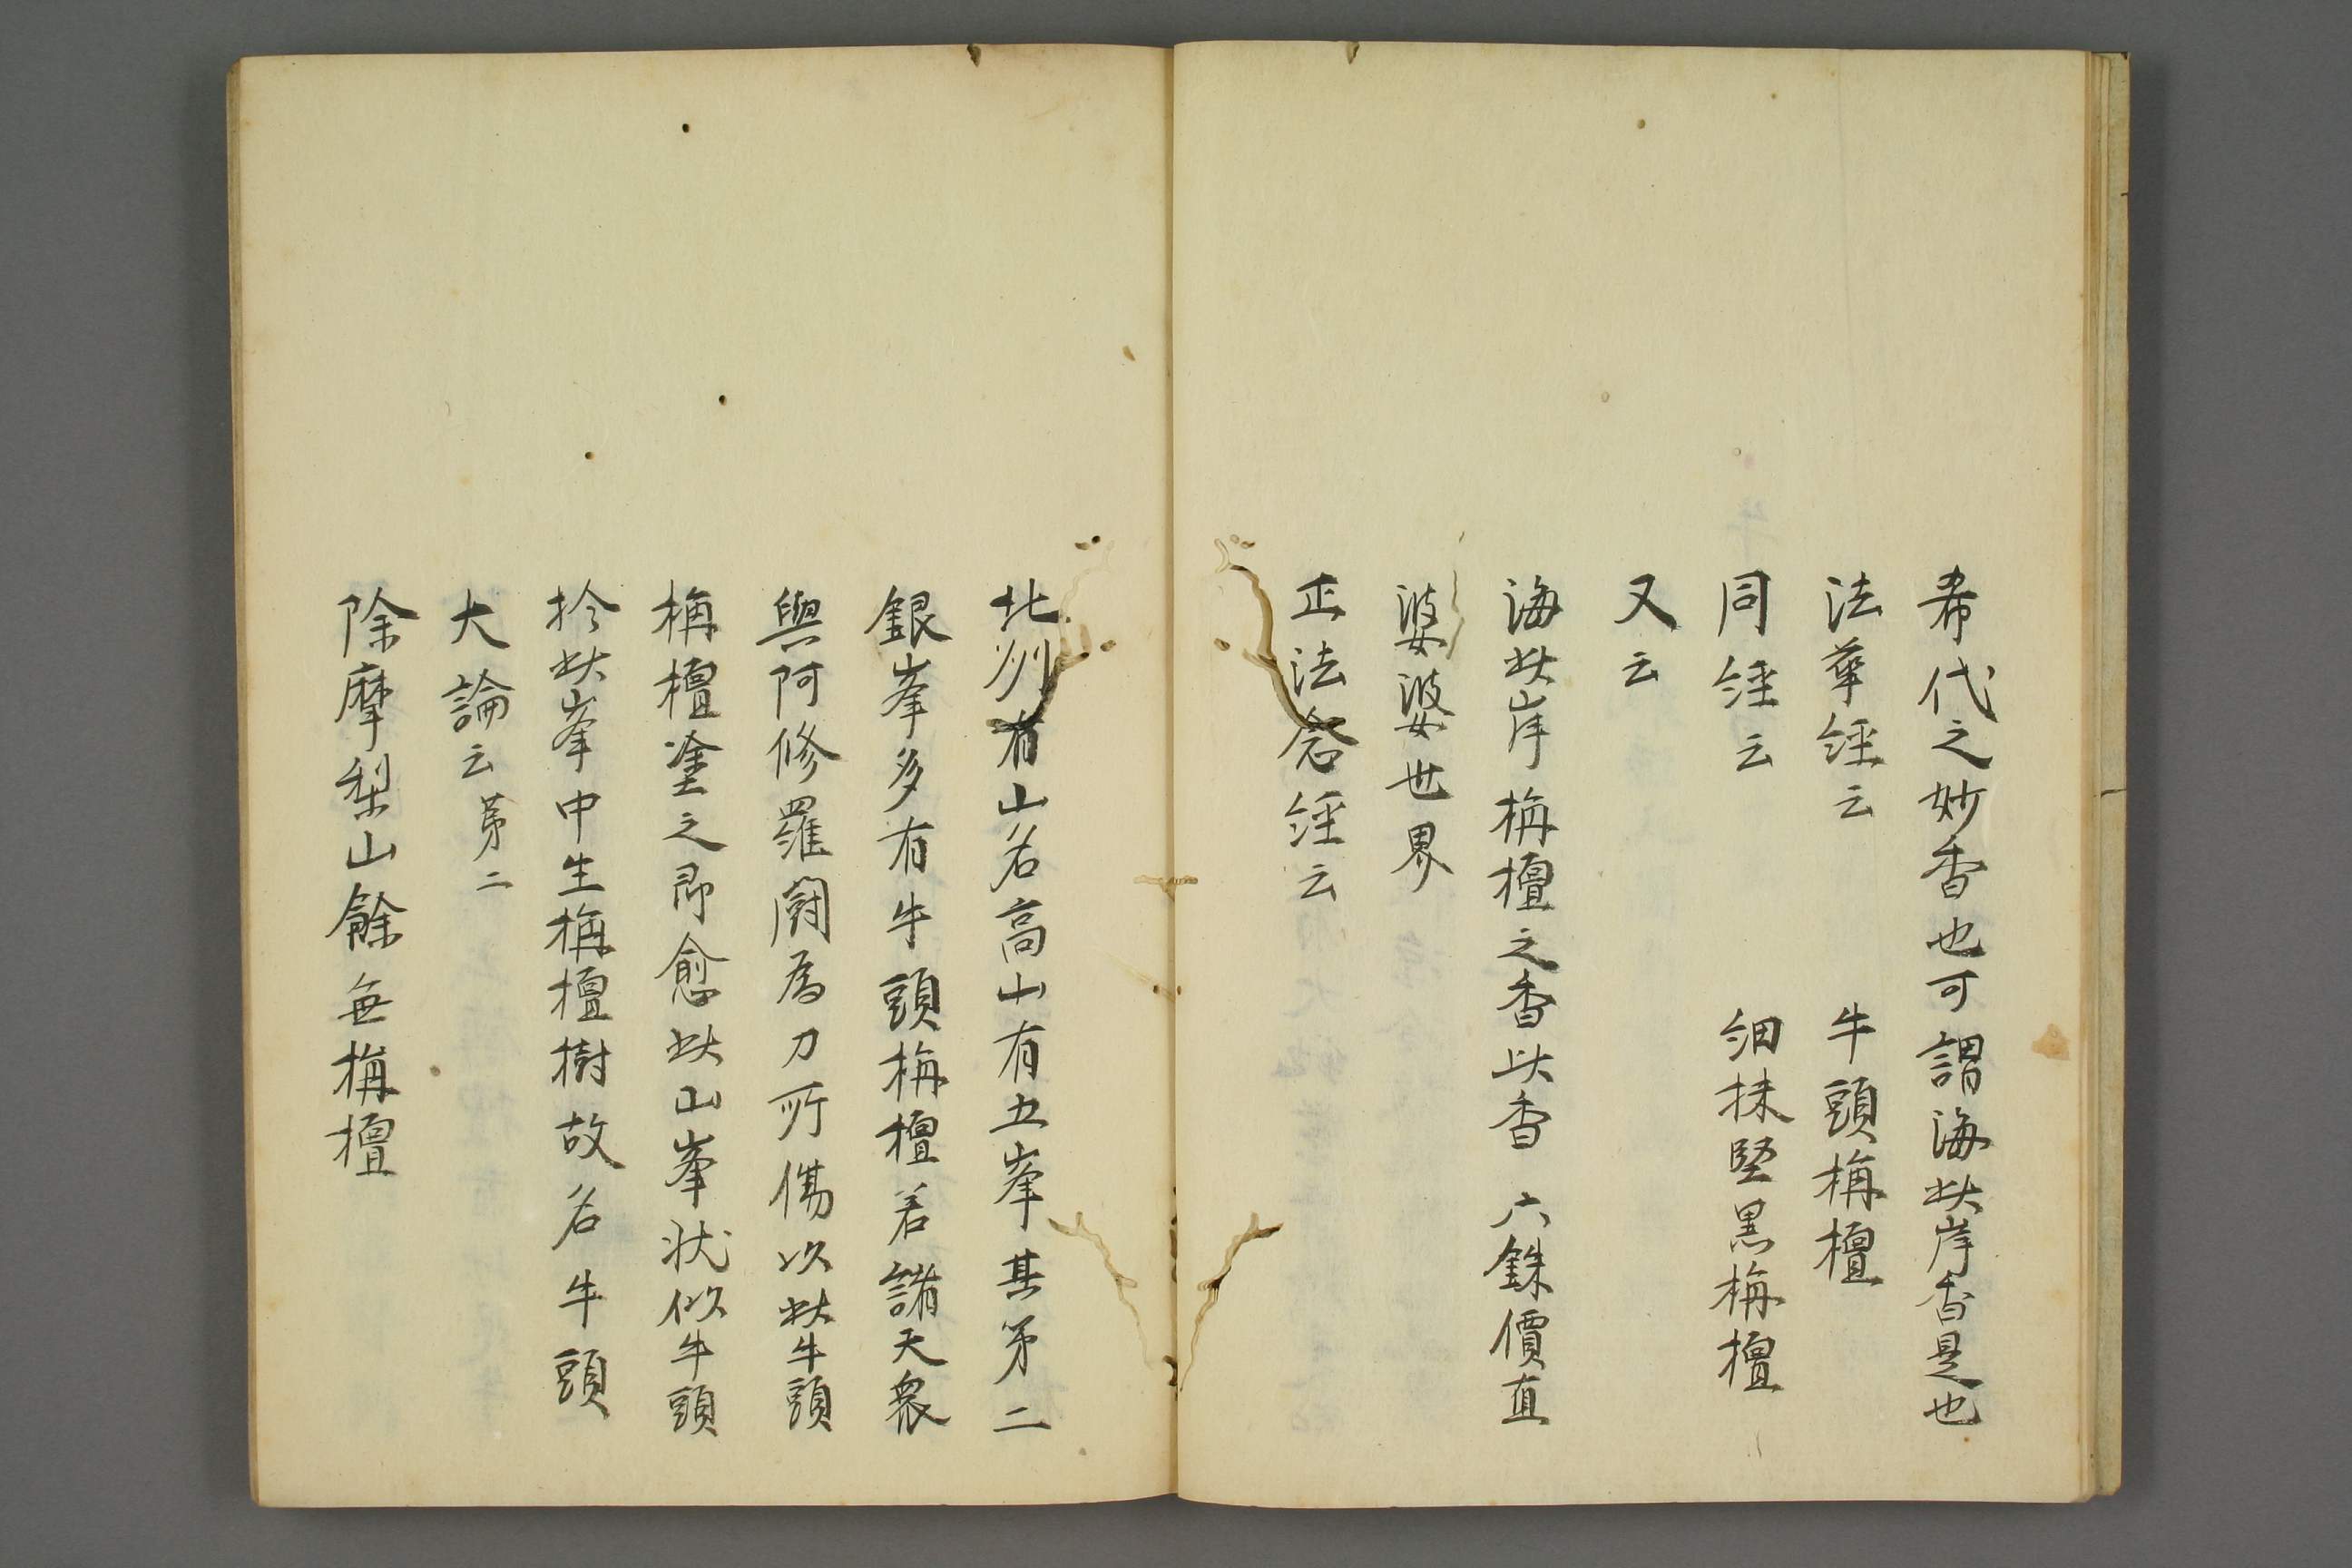 希代之妙香也可謂海此岸香是也
法華経云 牛頭栴檀
同経云 細抹堅黒栴檀
又云
海此岸栴檀之香此香六銖價直
婆婆世界
正法念経云
北洲有山名高山有五峯其第二
銀峯多有牛頭栴檀若諸天衆
與阿修羅闘為刀所傷以此牛頭
栴檀塗之即愈此山峯状似牛頭
於此峯中生栴檀樹故名牛頭
大論云第二
除摩梨山餘無栴檀